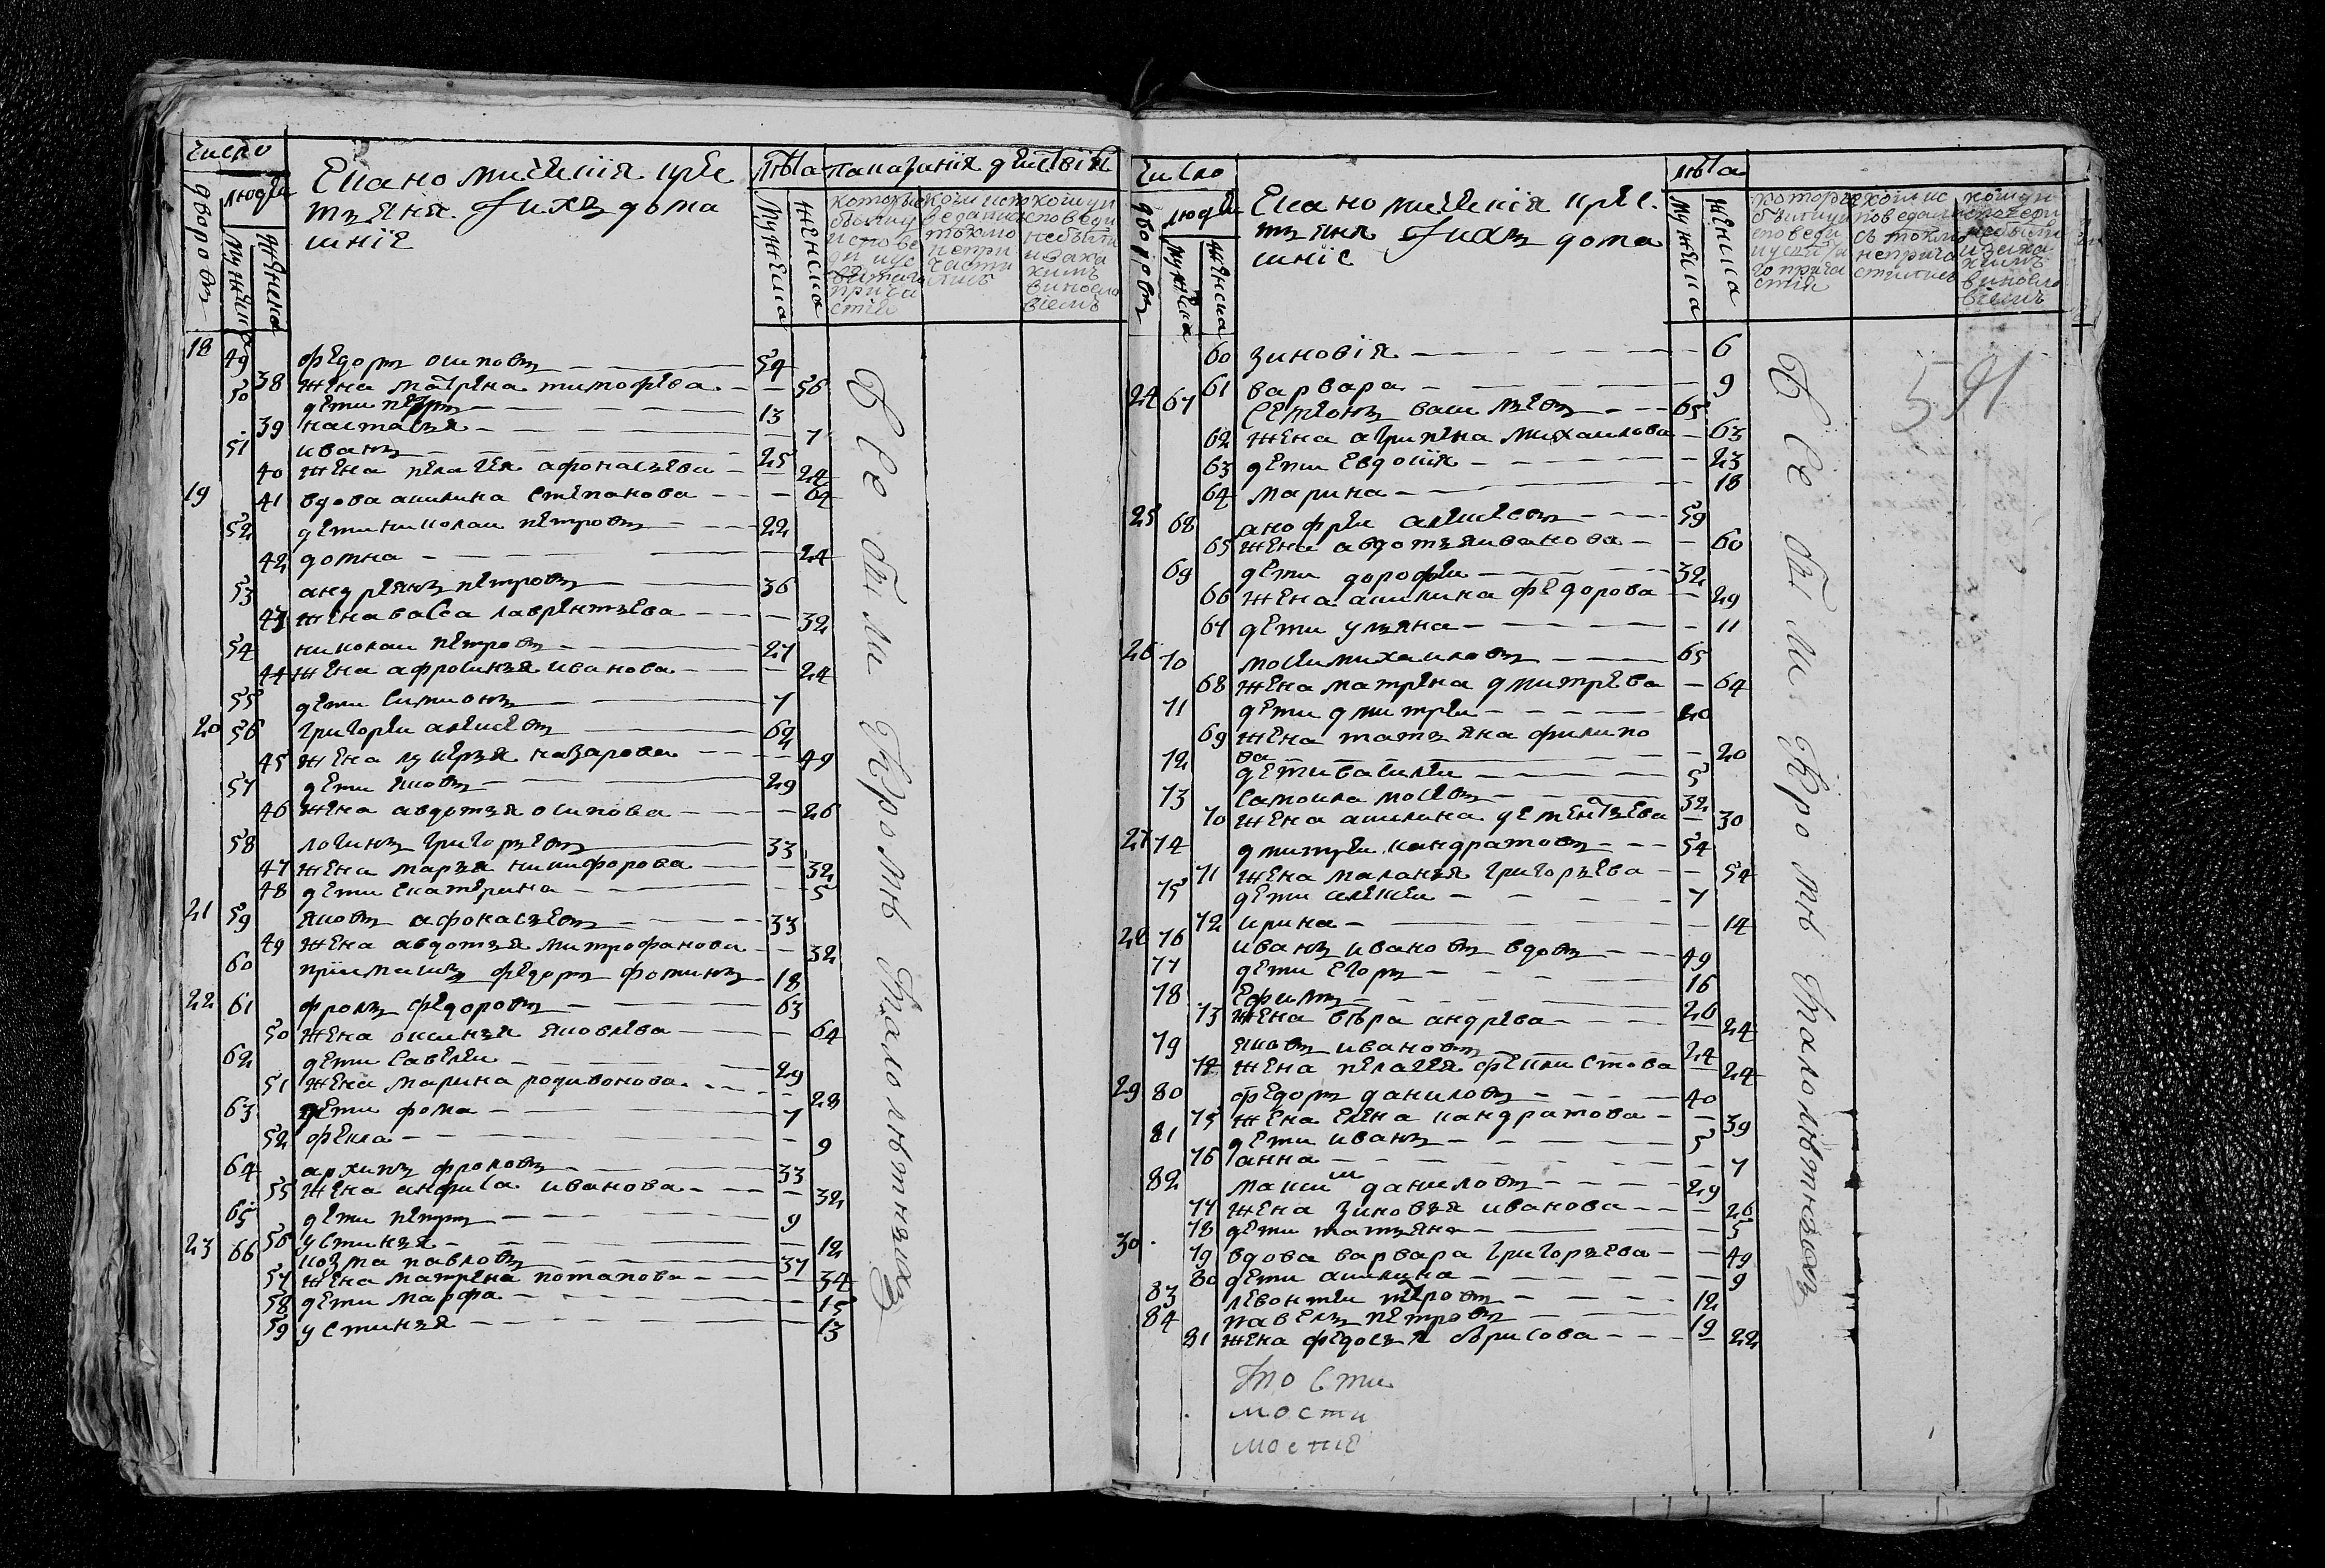 число
людей
дворовъ
мужеска
женска
Економическія кре
стьяня и ихъ дома
шніе
лѣта
мужеска
женска
показанія действія
18 49 федоръ осиповъ 54
38 жена матрена тимофева 56
50 дети петръ 13
39 настасья 7
51 иванъ 25
40 жена пелагея афонасьева 24
19 41 вдова акилина степанова 64
52 дети николаи петровъ 22
42 домна 24
53 андреянъ петровъ 36
43 жена васса лаврентьева 32
54 николаи петровъ 27
44 жена афросинья иванова 24
55 дети симионъ 7
20 56 григореи алексевъ 62
45 жена лукерья назарова 49
57 дети яковъ 29
46 жена авдотья осипова 26
58 логинъ григорьевъ 33
47 жена марья никифорова 32
48 дети екатерина 5
21 59 яковъ афонасьевъ 33
49 жена авдотья митрофанова 32
60 приимашъ федоръ фоминъ 18
22 61 фролъ федоровъ 63
50 жена оксинья яковлева 64
62 дети савелеи 29
51 жена марина родивонова 28
63 дети фома 7
52 фекла 9
64 архипъ фроловъ 33
55 жена анфиса иванова 32
65 дети петръ 9
56 устинья 12
23 66 козма павловъ 37
57 жена матрена потапова 34
58 дети марфа 15
59 устинья 13
Все были Кромѣ малолѣтныхъ
число
людей
дворовъ
мужеска
женска
Економическія крес
тьяня и ихъ дома
шніе
лѣта
мужеска
женска
60 зиновія 6
61 варвара 9
24 67 семионъ васильевъ 65
62 жена агрипена михаилова 63
63 дети евдокія 23
64 марина 18
25 68 анофреи алексеевъ 59
65 жена авдотья иванова 60
69 дети дорофеи 32
66 жена акилина федорова 29
67 дети ульяна 11
26 70 мосеи михаиловъ 65
68 жена матрена дмитрева 64
71 дети дмитреи 20
69 жена татьяна филипо
ва 20
72 дети василеи 5
73 самоила мосевъ 32
70 жена акилина дементьева 30
27 74 дмитреи кандратовъ 54
71 жена маланья григорьева 54
75 дети алексеи 7
72 ирина 14
28 76 иванъ ивановъ вдовъ 49
77 дети егоръ 16
78 ефимъ 26
73 жена вѣра андрева 24
79 яковъ ивановъ 24
74 жена пелагея феклистова 24
29 80 федоръ даниловъ 40
75 жена елена кандратова 39
81 дети иванъ 5
76 анна 7
82 максим даниловъ 29
77 жена зиновья иванова 26
78 дети татьяна 5
30 79 вдова варвара григорьева 49
80 дети акилина 9
83 левонтеи петровъ 12
84 павелъ петровъ 19
81 жена федосья борисова 22
Все были Кромѣ малолѣтныхъ
591
мости
мости